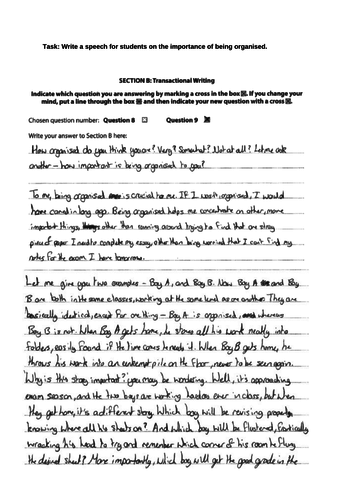 Task: Write a speech for students on the importance of being organised.
SECTION B: Transactional Writing
Indicate which question you are answering by marking a cross in the box ☒. If you change your
mind, put a line through the box and then indicate your new question with a cross ☒.
Chosen question number: Question 8 ☐ Question 9 ☒
Write your answer to Section B here:
How organised do you think you are? Very? Somewhat? Not at all? Let me ask
another - how important is being organised to you?
To me, being organised is crucial to me. If I wasn't organised, I would
have caved in long ago. Being organised helps me concentrate on other, more
important things other than running around trying to find that one stray
piece of paper I need to complete my essay other than being worried that I can't find my
notes for the exam I have tomorrow.
Let me give you two examples - Boy A, and Boy B. Now Boy A and Boy
B are both in the same classes, working at the same level as one another. They are
basically identical, except for one thing - Boy A is organised, whereas
Boy B is not. When Boy A gets home, he stores all his work neatly into
folders, easily found if the time comes he needs it. When Boy B gets home, he
throws his work into an unkempt pile on the floor, never to be seen again.
Why is this story important? you may be wondering. Well, it's approaching
exam season, and the two boys are working harder than ever in class, but when
they get home, it's a different story. Which boy will be revising properly,
knowing where all his sheets are? And which boy will be flustered, frantically
wracking his head to try and remember which corner of his room he flung
the desired sheet? More importantly, which boy will get the good grade in the